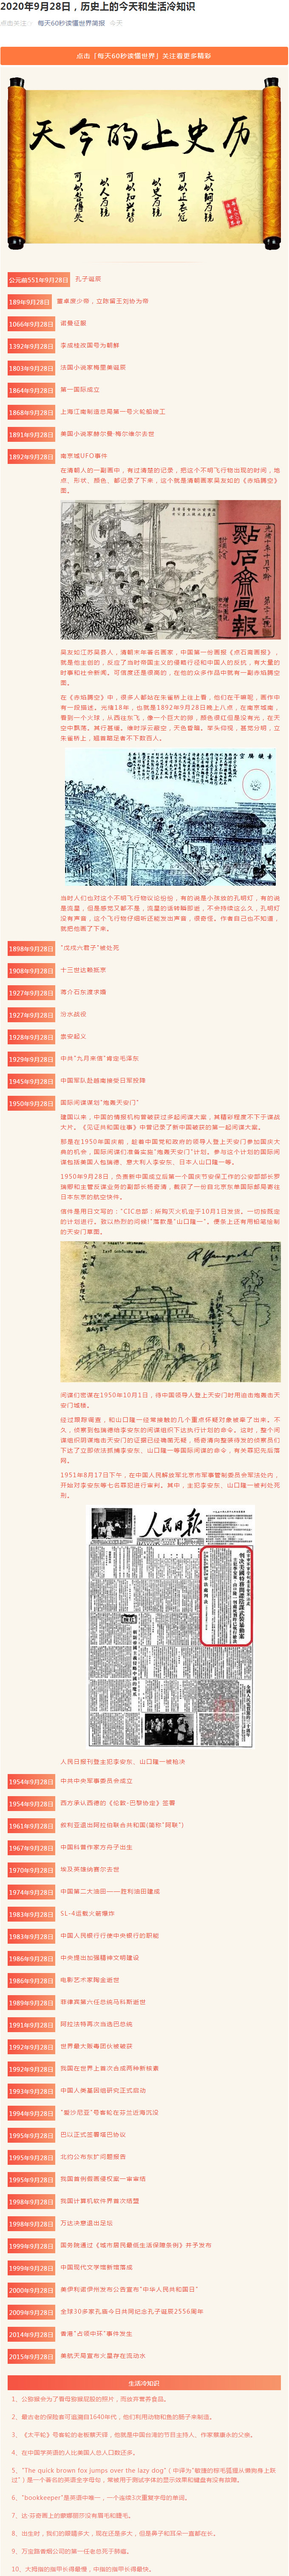 2020年9月28日，历史上的今天和生活冷知识
点击关注☞ 每天60秒读懂世界简报 今天
点击「每天60秒读懂世界」关注看更多精彩
历史上的今天
夫以铜为镜
可以正衣冠
以史为镜
可以知兴替
以人为镜
可以明得失
公元前551年9月28日 孔子诞辰
189年9月28日 董卓废少帝，立陈留王刘协为帝
1066年9月28日 诺曼征服
1392年9月28日 李成桂改国号为朝鲜
1803年9月28日 法国小说家梅里美诞辰
1864年9月28日 第一国际成立
1868年9月28日 上海江南制造总局第一号火轮船竣工
1891年9月28日 美国小说家赫尔曼·梅尔维尔去世
1892年9月28日 南京城UFO事件
在清朝人的一副画中，有过清楚的记录，把这个不明飞行物出现的时间，地
点，形状，颜色，都记录了下来，这个就是清朝画家吴友如的《赤焰腾空》
图。
點石齋畫報
吴友如江苏吴县人，清朝末年著名画家，中国第一份画报《点石斋画报》，
就是他主创的，反应了当时帝国主义的侵略行径和中国人的反抗，有大量的
时事和社会新闻。可信度还是很高的，在他的众多作品中就有一副赤焰腾空
图。
在《赤焰腾空》中，很多人都站在朱雀桥上往上看，他们在干嘛呢，画作中
有一段描述。光绪18年，也就是1892年9月28日晚上八点，在南京城南，
看到一个火球，从西往东飞，像一个巨大的卵，颜色很红但是没有光，在天
空中飘荡。其行甚缓。维时浮云蔽空，天色昏暗。举头仰视，甚觉分明，立
朱雀桥上，翘首踮足者不下数百人。
当时人们也对这个不明飞行物议论纷纷，有的说是小孩放的孔明灯，有的说
是流星，但是感觉又都不是，流星的话转瞬即逝，不会持续这么久，孔明灯
没有声音，这个飞行物仔细听还能发出声音，很奇怪。作者自己也不知道，
就把他画了下来。
1898年9月28日 “戊戌六君子”被处死
1908年9月28日 十三世达赖抵京
1927年9月28日 蒋介石东渡求婚
1927年9月28日 汾水战役
1928年9月28日 崇安起义
1929年9月28日 中共“九月来信”肯定毛泽东
1945年9月28日 中国军队赴越南接受日军投降
1950年9月28日 国际间谍谋划“炮轰天安门”
建国以来，中国的情报机构曾破获过多起间谍大案，其精彩程度不下于谍战
大片。《见证共和国往事》中曾记录了新中国破获的第一起间谍大案。
那是在1950年国庆前，趁着中国党和政府的领导人登上天安门参加国庆大
典的机会，国际间谍们准备实施“炮轰天安门”计划。参与这个计划的国际间
谍包括美国人包瑞德、意大利人李安东、日本人山口隆一等。
1950年9月28日，负责新中国成立后第一个国庆节安保工作的公安部部长罗
瑞卿和主管反谍业务的副部长杨奇清，截获了一份自北京东单国际邮局寄往
日本东京的航空快件。
信件是用日文写的：“CIC总部：所购灭火机应于10月1日发货。一切按既定
的计划进行。致以热烈的问候!”落款是“山口隆一”。便条上还有用铅笔绘制
的天安门草图。
间谍们密谋在1950年10月1日，待中国领导人登上天安门时用迫击炮轰击天
安门城楼。
经过周密调查，和山口隆一经常接触的几个重点怀疑对象被牵了出来。不
久，侦察到包瑞德给李安东的间谍组织下达执行计划的命令。这时，整个间
谍组织阴谋炮击天安门的证据已经确凿无疑，杨奇清向整装待发的侦察员们
下达了立即依法抓捕李安东、山口隆一等国际间谍的命令，有关罪犯先后落
网。
1951年8月17日下午，在中国人民解放军北京市军事管制委员会军法处内，
开始对李安东等七名罪犯进行审判。其中，主犯李安东、山口隆一被判处死
刑。
人民日报
人民日报刊登主犯李安东、山口隆一被枪决
1954年9月28日 中共中央军事委员会成立
1954年9月28日 西方承认西德的《伦敦-巴黎协定》签署
1961年9月28日 叙利亚退出阿拉伯联合共和国(简称“阿联”)
1967年9月28日 中国科普作家方舟子出生
1970年9月28日 埃及英雄纳赛尔去世
1974年9月28日 中国第二大油田——胜利油田建成
1983年9月28日 SL-4运载火箭爆炸
1983年9月28日 中国人民银行行使中央银行的职能
1986年9月28日 中央提出加强精神文明建设
1986年9月28日 电影艺术家陶金逝世
1989年9月28日 菲律宾第六任总统马科斯逝世
1991年9月28日 阿拉法特再次当选巴总统
1992年9月28日 世界最大贩毒团伙被破获
1992年9月28日 我国在世界上首次合成两种新核素
1993年9月28日 中国人类基因组研究正式启动
1994年9月28日 “爱沙尼亚”号客轮在芬兰近海沉没
1995年9月28日 巴以正式签署塔巴协议
1995年9月28日 北约公布东扩问题报告
1995年9月28日 我国首例假画侵权案一审审结
1998年9月28日 我国计算机软件界首次结盟
1998年9月28日 万达决意退出足坛
1999年9月28日 国务院通过《城市居民最低生活保障条例》并予发布
1999年9月28日 中国现代文学馆新馆落成
2000年9月28日 美伊利诺伊州发布公告宣布“中华人民共和国日”
2009年9月28日 全球30多家孔庙今日共同纪念孔子诞辰2556周年
2014年9月28日 香港“占领中环”事件发生
2015年9月28日 美航天局宣布火星存在流动水
生活冷知识
1、公狼舔舍为了看母狼腚屁股的照片，而放弃营养食品。
2、最古老的保险套可追溯自1640年代，他们利用动物和鱼的肠子来制造。
3、《太平轮》号客轮的老板蔡天铎，他就是中国台湾的节目主持人、作家蔡康永的父亲。
4、在中国学英语的人比美国人总人口数还多。
5、“The quick brown fox jumps over the lazy dog”（中译为“敏捷的棕毛狐狸从懒狗身上跃
过”）是一个著名的英语全字母句，常被用于测试字体的显示效果和键盘有没有故障。
6、“bookkeeper”是英语中唯一，一个连续3次重复字母的单词。
7、达·芬奇画上的蒙娜丽莎没有眉毛和睫毛。
8、出生时，我们的眼睛多大，现在还是多大，但是鼻子和耳朵一直都在长。
9、万宝路香烟公司的第一任老总死于肺癌。
10、大拇指的指甲长得最慢，中指的指甲长得最快。